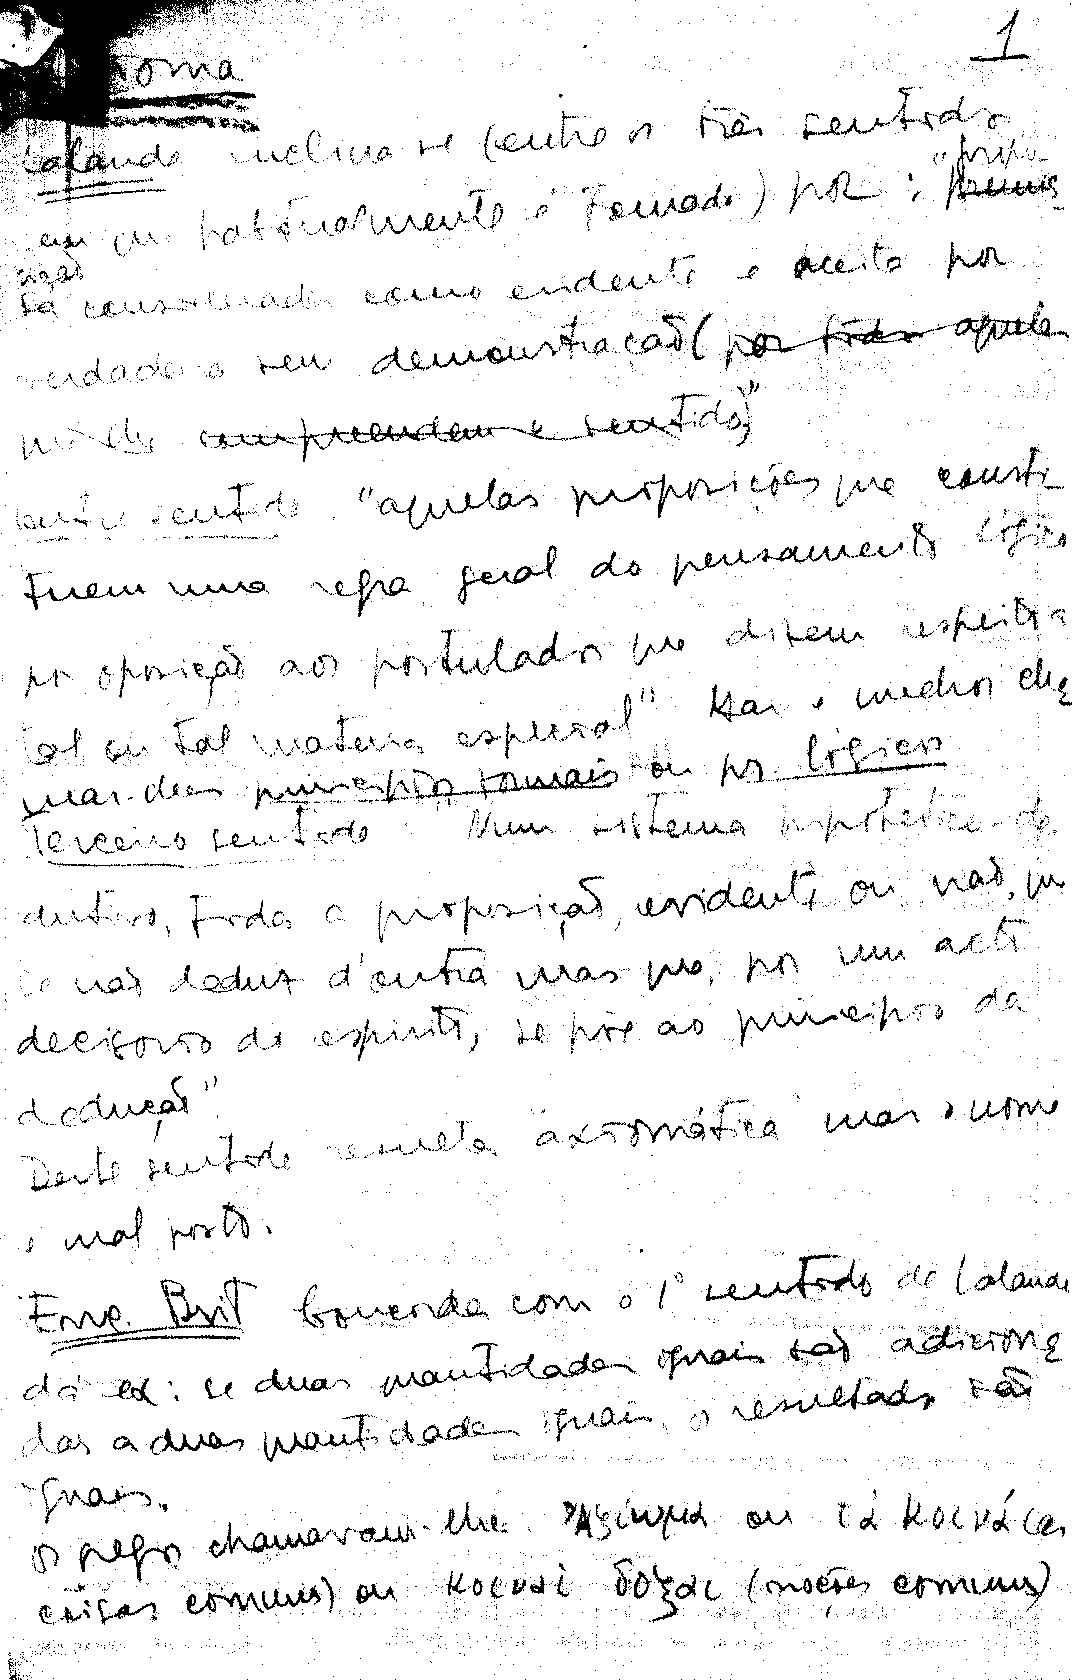 1
ioma
Lalande inclina-se (entre os três sentidos
"propo-
em que habitualmente é tomado) por: premis-
sição
sa considerada como evidente e aceite por
verdadeira sem demonstração (por todos aqueles
que lhe compreendem o sentido)"
outro sentido "aquelas proposições que consti-
tuem uma regra geral do pensamento lógico
por oposição aos postulados que dizem respeito a
tal ou tal matéria especial" Mas é melhor cha-
mar-lhes princípios formais ou pr. lógicos
Terceiro sentido: Num sistema hipotético-de-
dutivo, toda a proposição, evidente ou não, que
se não deduz d'outra mas que, por um acto
decisório do espírito, se põe ao princípio da
dedução".
Deste sentido resulta "axiomática" mas o nome
é mal posto.
Enc. Brit Concorda com o 1º sentido de Lalande
dá ex: se duas quantidades iguais são adiciona-
das a duas quantidades iguais, os resultados são
iguais.
os gregos chamavam-lhe Ἀξίωμα ou τὰ κοινὰ (as
coisas comuns) ou κοιναὶ δόξαι (noções comuns)